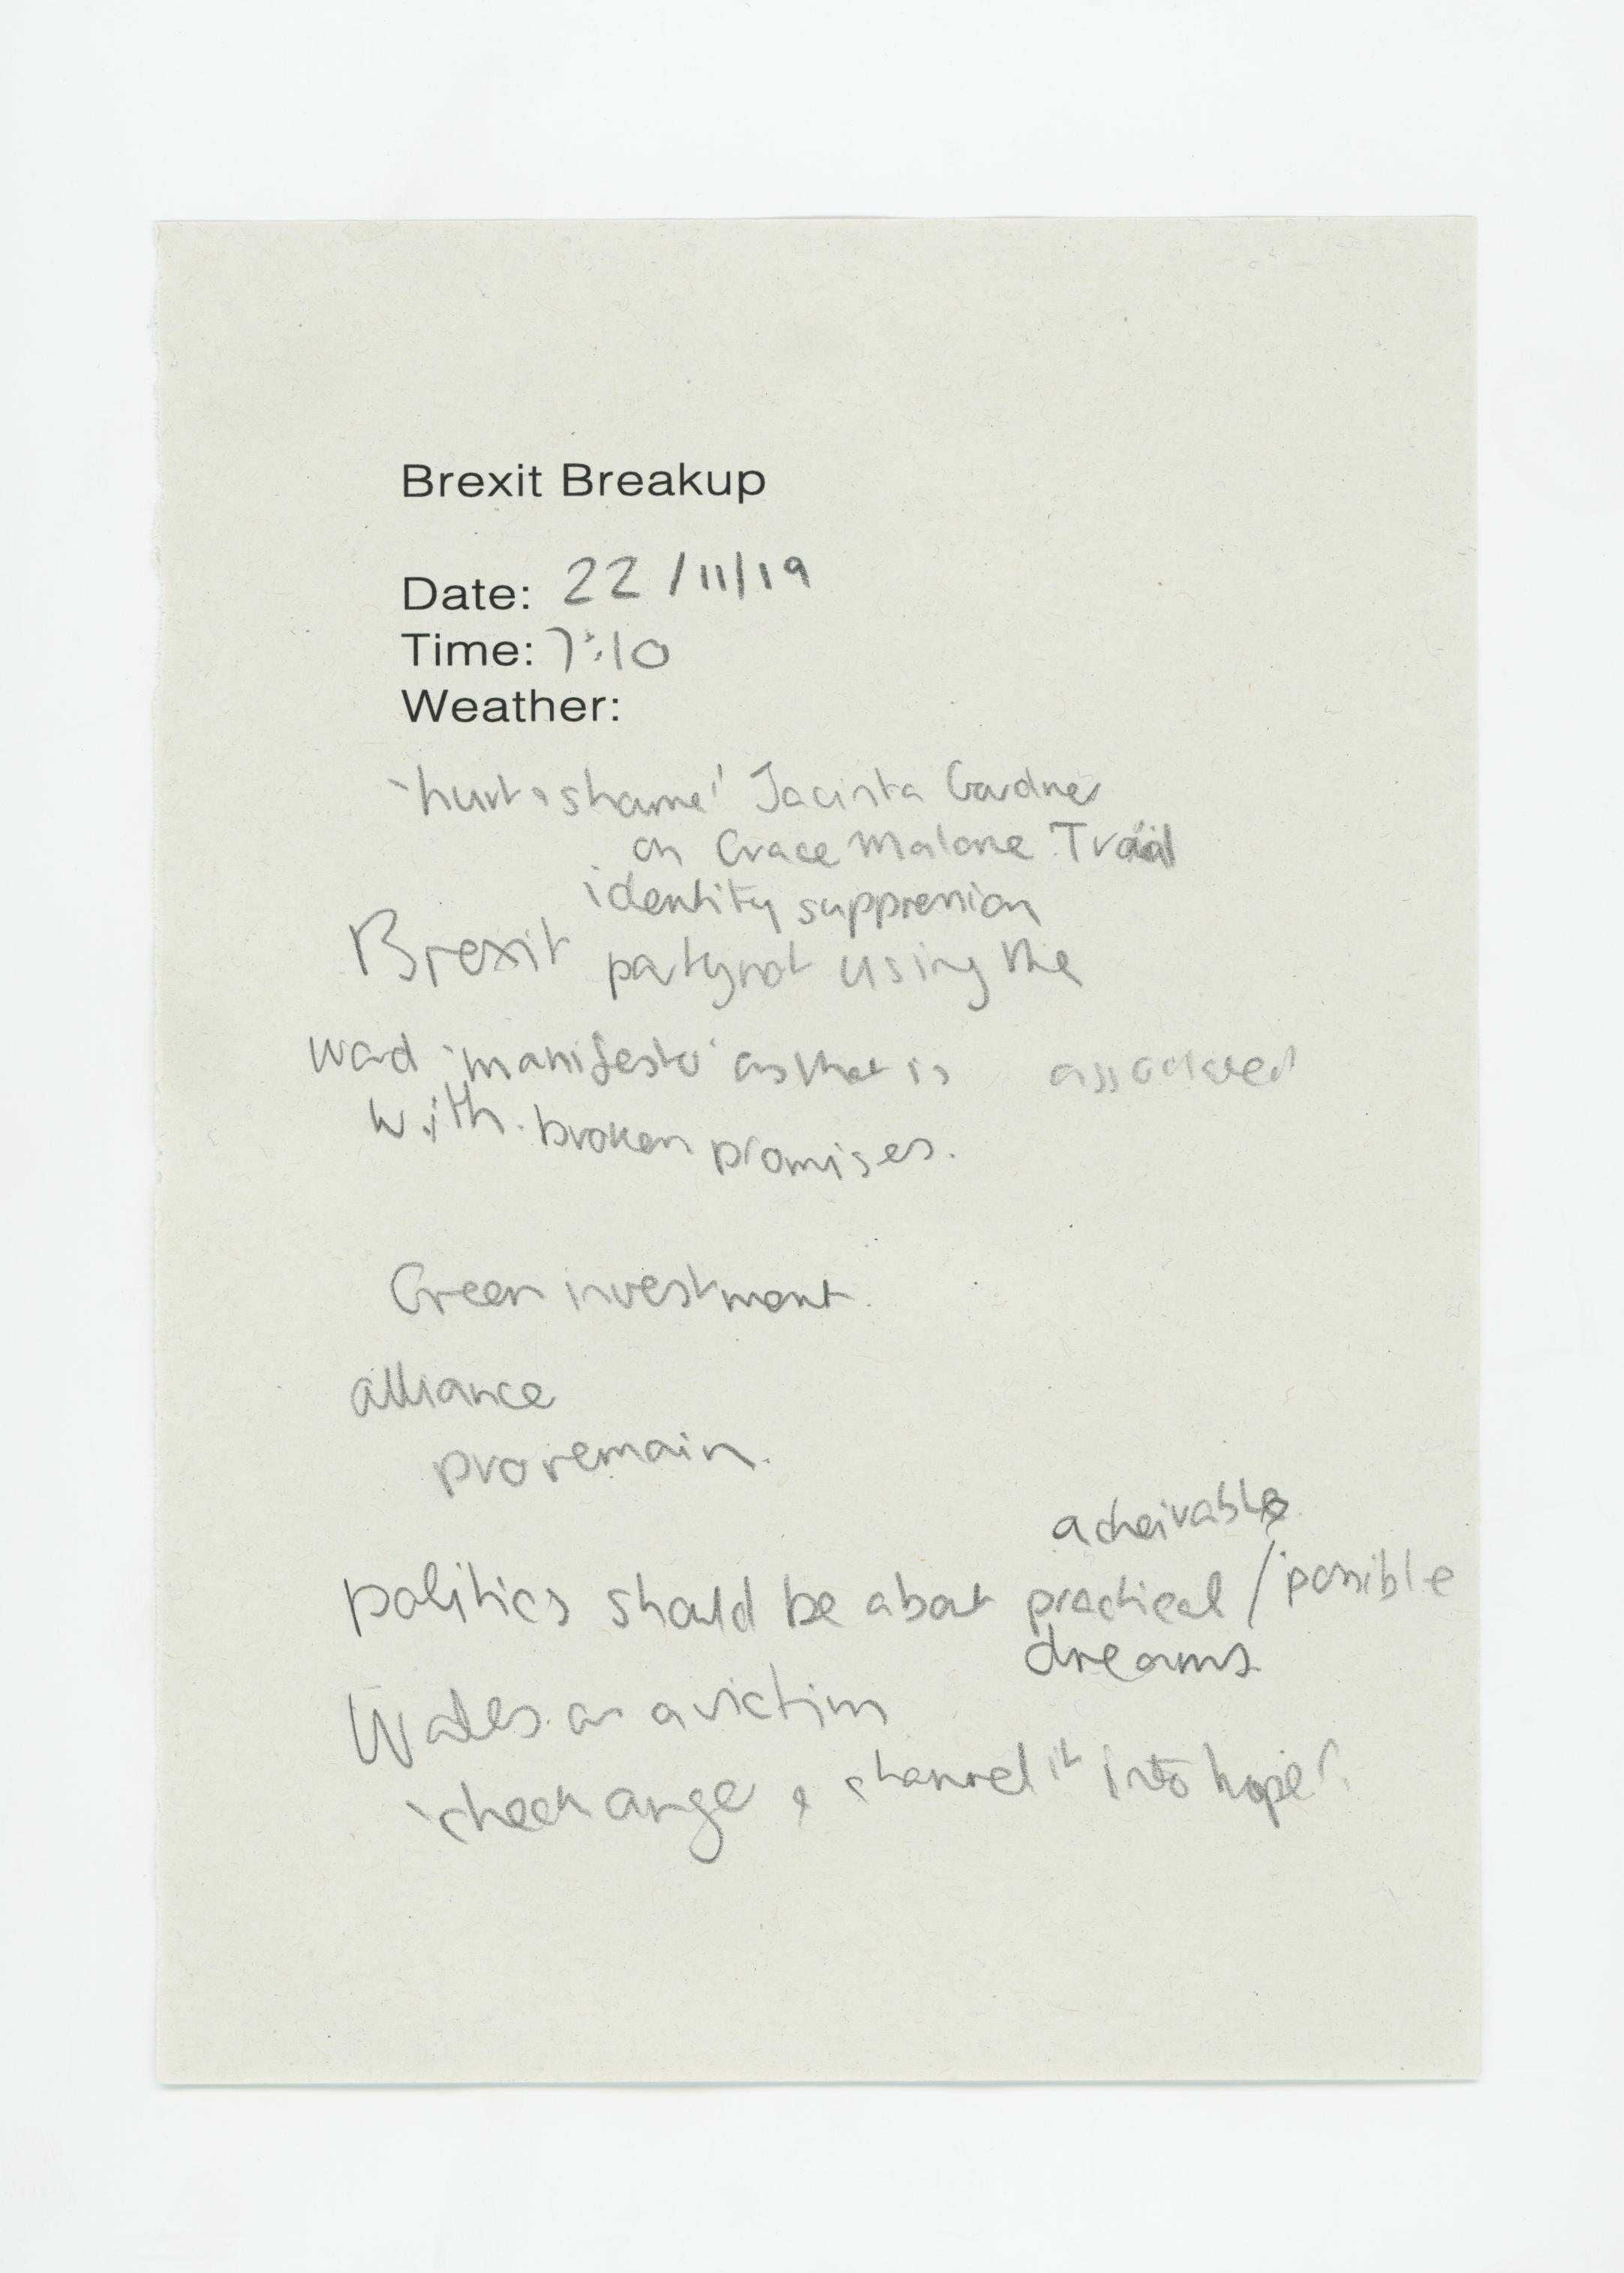 Brexit Breakup
Date: 22/11/19
Time: 7:10
Weather:
'hurt & shame' Jacinta Gardner
on Grace Malone Trail
identity suppression
Brexit party not using the
word 'manifesto' as that is associated
with broken promises.
Green investment.
alliance
pro remain.
acheivable
politics should be about practical / possible
dreams
Wales as a victim
'check ange & channel it into hope'.